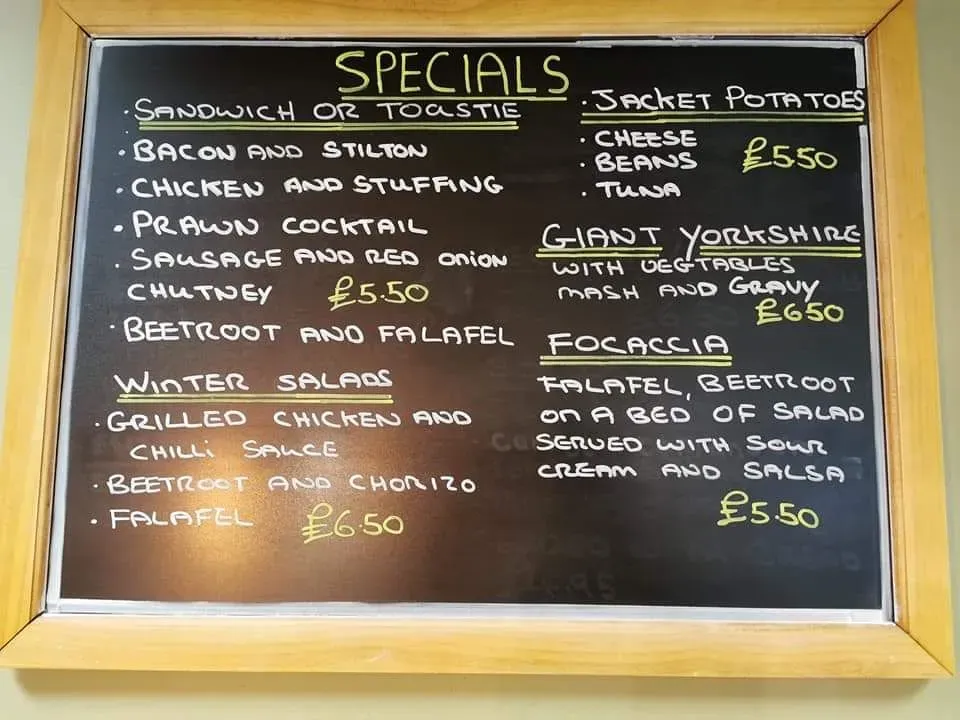 SPECIALS
· SANDWICH OR TOASTIE
· BACON AND STILTON
· CHICKEN AND STUFFING
· PRAWN COCKTAIL
· SAUSAGE AND RED ONION
CHUTNEY £5.50
· BEETROOT AND FALAFEL
WINTER SALADS
· GRILLED CHICKEN AND
CHILLI SAUCE
· BEETROOT AND CHORIZO
· FALAFEL £6.50
· JACKET POTATOES
· CHEESE
· BEANS £5.50
· TUNA
GIANT YORKSHIRE
WITH VEGTABLES
MASH AND GRAVY
£650
FOCACCIA
FALAFEL, BEETROOT
ON A BED OF SALAD
SERVED WITH SOUR
CREAM AND SALSA
£5.50